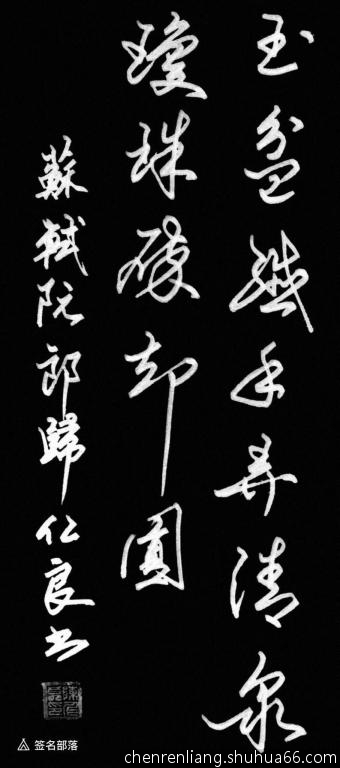 玉盆纖手弄清泉
瓊珠碎却圓
蘇軾阮郎歸 仁良书
签名部落
chenrenliang.shuhua66.com